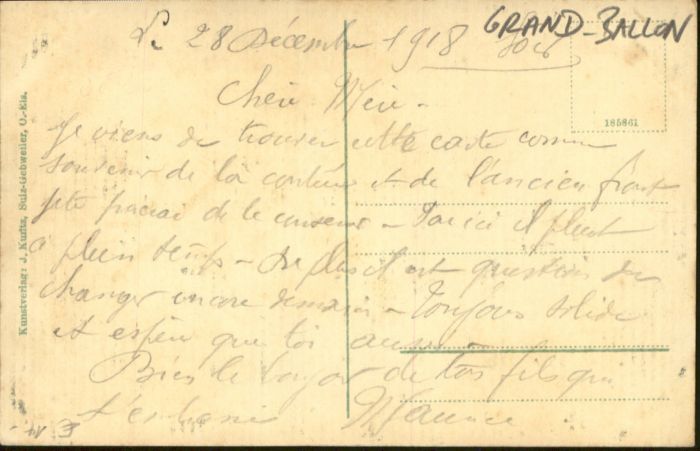 GRAND-BALLON
Le 28 Décembre 1918 soir
Chère Mère -
Je viens de trouver cette carte comme
souvenir de la contrée et de l'ancien front
je te prierai de le conserver - Par ici il pleut
à plein temps - De plus il est question de
changer encore demain - Toujours solide
et espère que toi aussi -
Bien le bonjour de ton fils qui
t'embrasse Maurice
185861
Kunstverlag: J. Kuntz, Sulz-Gebweiler, O.-Els.